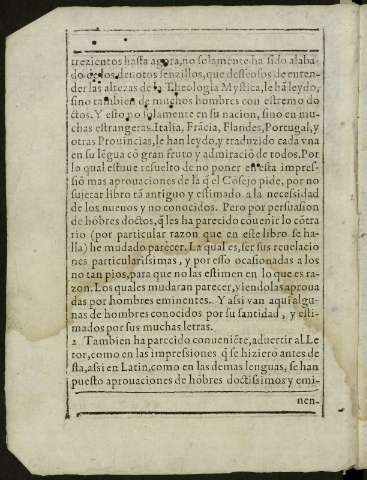 trezientos hasta agora, no solamẽte ha sido alaba-
do de los deuotos senzillos, que desseosos de enten-
der las altezas de la Theologia Mystica, le hã leydo,
sino tambien de muchos hombres con estremo do
ctos. Y esto no solamente en su nacion, sino en mu-
chas estrangeras. Italia, Frãcia, Flandes, Portugal, y
otras Prouincias, le han leydo, y traduzido cada vna
en su lẽgua cõ gran fruto y admiraciõ de todos. Por
lo qual estuue resuelto de no poner en esta impres-
siõ mas aprouaciones de la q̃ el Cõsejo pide, por no
sujetar libro tã antiguo y estimado a la necesidad
de los nueuos y no conocidos. Pero por persuasion
de hõbres doctos, q̃ les ha parecido cõuenir lo cõtra
rio (por particular razon que en este libro se ha-
lla) he mudado parecer. La qual es, ser sus reuelacio
nes particularissimas, y por esso ocasionadas a los
no tan pios, para que no las estimen en lo que es ra-
zon. Los quales mudaran parecer, viendolas aproua
das por hombres eminentes. Y assi van aqui algu-
nas de hombres conocidos por su santidad, y esti-
mados por sus muchas letras.
2 Tambien ha parecido conueniẽte, aduertir al Le
tor, como en las impressiones q̃ se hizierõ antes de
sta, assi en Latin, como en las demas lenguas, se han
puesto aprouaciones de hõbres doctissimos y emi-
nen-